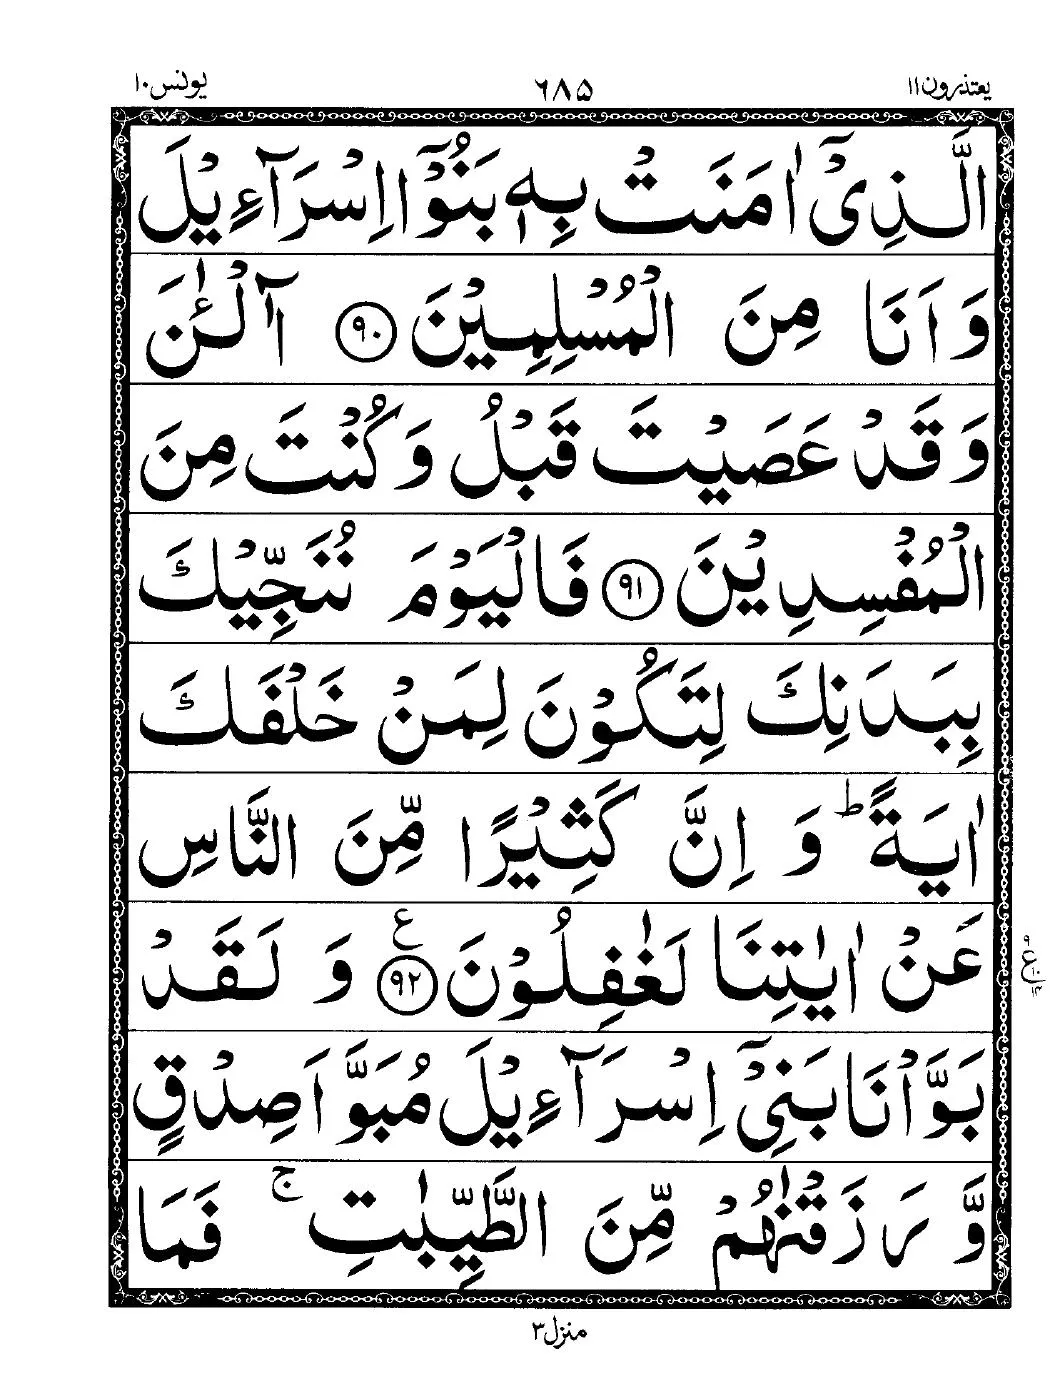 يعتذرون ١١ ٦٨٥ يونس ١٠
الَّذِىْۤ اٰمَنَتْ بِهٖ بَنُوْۤا اِسْرَآءِيْلَ
وَ اَنَا مِنَ الْمُسْلِمِيْنَ ۝٩٠ آٰلْـٰٔنَ
وَ قَدْ عَصَيْتَ قَبْلُ وَ كُنْتَ مِنَ
الْمُفْسِدِيْنَ ۝٩١ فَالْيَوْمَ نُنَجِّيْكَ
بِبَدَنِكَ لِتَكُوْنَ لِمَنْ خَلْفَكَ
اٰيَةً ؕ وَ اِنَّ كَثِيْرًا مِّنَ النَّاسِ
عَنْ اٰيٰتِنَا لَغٰفِلُوْنَ ۝٩٢ ع وَ لَقَدْ
٩ ع ١٠ ١٤
بَوَّاْنَا بَنِىْۤ اِسْرَآءِيْلَ مُبَوَّاَ صِدْقٍ
وَّ رَزَقْنٰهُمْ مِّنَ الطَّيِّبٰتِ ۚ فَمَا
منزل ٣